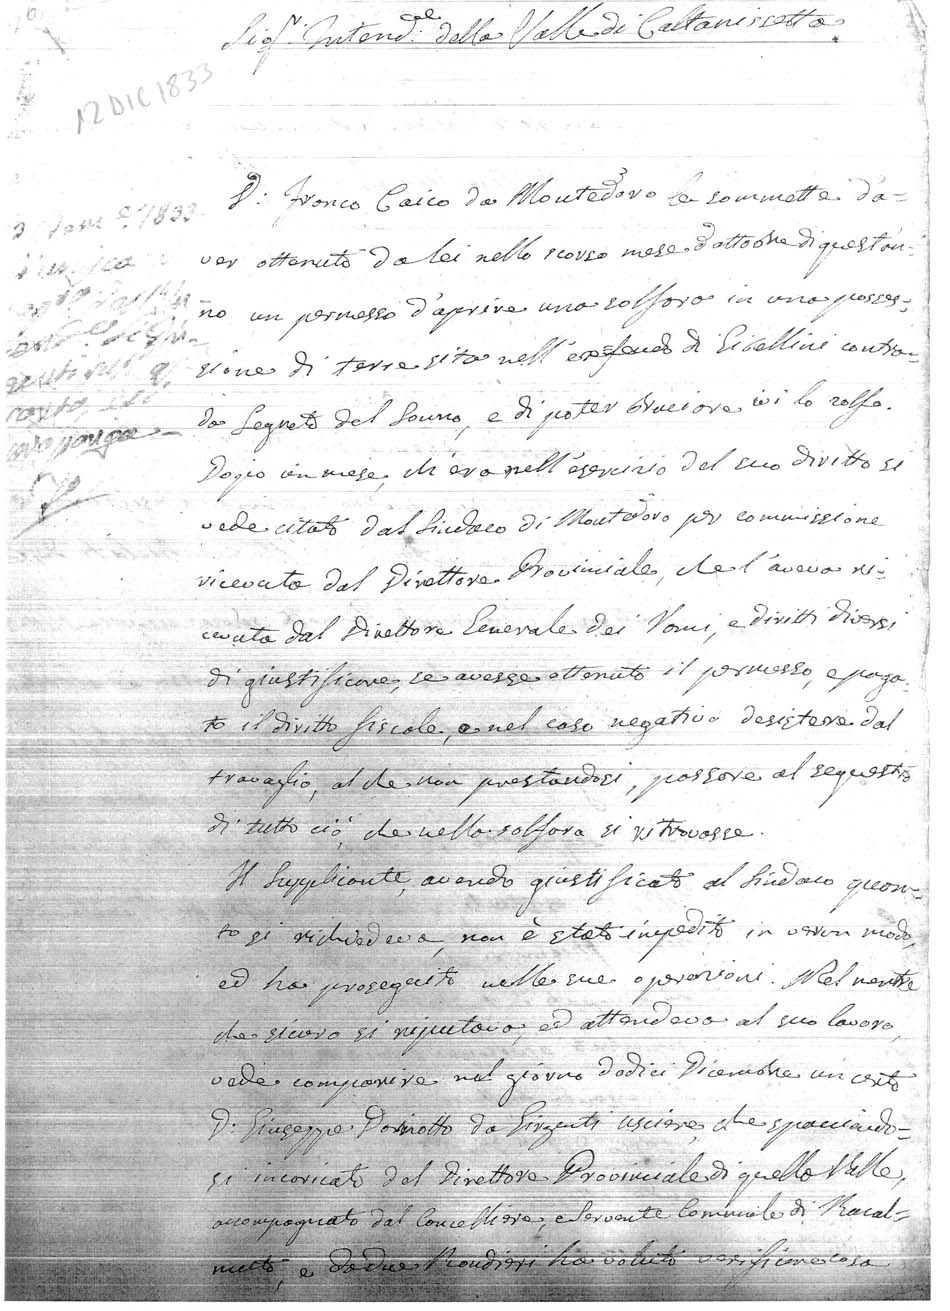 Sig.r Intend.te della Valle di Caltanissetta.
12 DIC 1833
D: Franco Caico da Montedoro le sommette d'a=
ver ottenuto da lei nello scorso mese d'ottobre di quest'an-
no un permesso d'aprire una solfara in una posses-
sione di terre sita nell'exfeudo di Gibellini contra-
da Segreto del Souro, e di poter bruciare ivi lo zolfo.
Dopo un mese, ch'era nell'esercizio del suo diritto si
vede citato dal Sindaco di Montedoro per commissione
ricevuta dal Direttore Provinciale, che l'aveva ri-
cevuta dal Direttore Generale dei Rami, e diritti diversi
di giustificare, se avesse ottenuto il permesso, e paga-
to il diritto fiscale, e nel caso negativo desistere dal
travaglio, al che non prestandosi, passare al sequestro
di tutto ciò, che nella solfara si ritrovasse.
Il Supplicante, avendo giustificato al Sindaco quan-
to si richiedeva, non è stato impedito in verun modo,
ed ha proseguito nelle sue operazioni. Nel mentre
che sicuro si riputava, ed attendeva al suo lavoro,
vede comparire nel giorno dodici Dicembre un certo
D: Giuseppe da Girgenti usciere, che spacciando=
si incaricato del Direttore Provinciale di quella Valle,
accompagnato dal Cancelliere, e Servente Comunale di Racal=
muto, e da due Rondieri ha voluto verificare cosa
3 1833